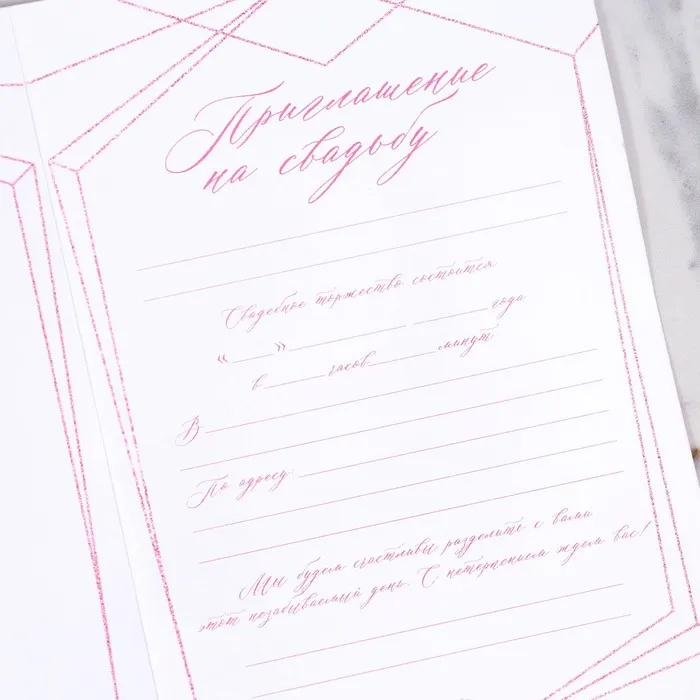 Приглашение
на свадьбу
Свадебное торжество состоится
«____»____________ ________года
в________часов________минут
В
По адресу:
Мы будем счастливы разделить с вами
этот незабываемый день. С нетерпением ждем вас!